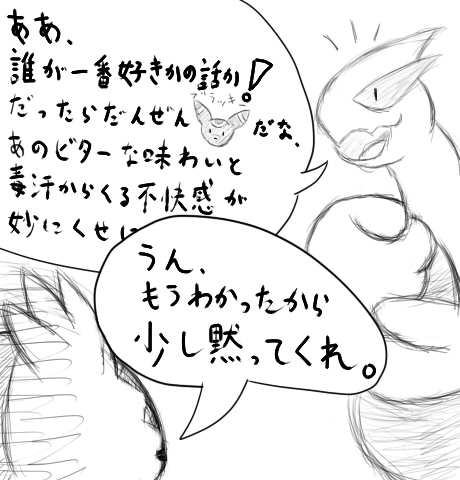 ああ、
誰が一番好きかの話か!
だったらだんぜん
ブラッキー
だな、
あのビターな味わいと
毒汗からくる不快感が
妙にくせに
うん、
もうわかったから
少し黙ってくれ。